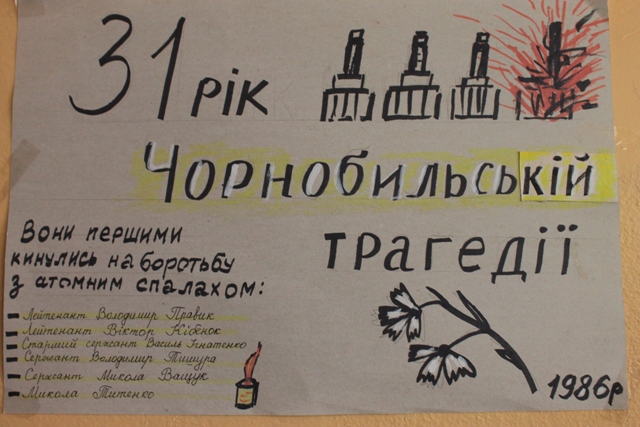 31 рік
Чорнобильській
трагедії
Вони першими
кинулись на боротьбу
з атомним спалахом:
Лейтенант Володимир Правик
Лейтенант Віктор Кібенок
Старший сержант Василь Ігнатенко
Сержант Володимир Тишура
Сержант Микола Ващук
Микола Титенко
1986р